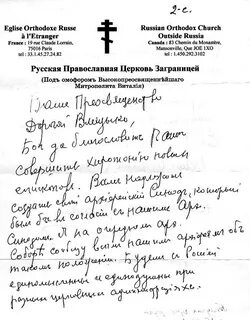 2-е.
Eglise Orthodoxe Russe
à l'Etranger
France : 19 rue Claude Lorrain,
75016 Paris
tel : 33.1.45.27.24.82
Russian Orthodox Church
Outside Russia
Canada : 8 Chemin du Monastere,
Mansonville, Que JOE 1XO
tel : 1.450.292.3102
Русская Православная Церковь Заграницей
(Подъ омофоромъ Высокопреосвященнѣйшаго
Митрополита Виталія)
Ваше Преосвященство
Дорогой Владыко,
Бог да благословит Вашe
совершить хиротонию новых
епископов. Вам надлежит
создать свой архиерейский Синод, который
был бы в согласии с нашим Арх.
Синодом. И на очередном Арх.
Соборе сообщу всем нашим архіереям об
таком положении. Будем в России
единомысленны и единодушны при
разных церковных администрациях.